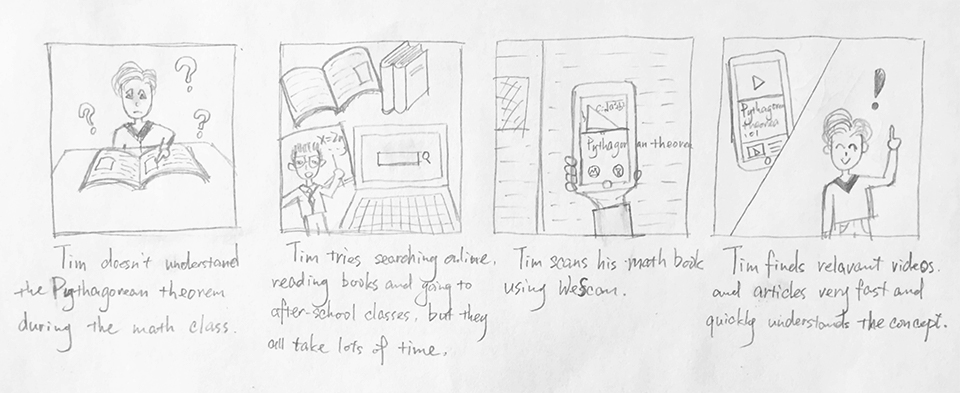 ? ? ?
Tim doesn't understand
the Pythagorean theorem
during the math class.
Tim tries searching online,
reading books and going to
after-school classes, but they
all take lots of time.
Pythagorean theorem
Tim scans his math book
using WeScan.
Pythagorean
theorem
101
!
Tim finds relavant videos
and articles very fast and
quickly understands the concept.